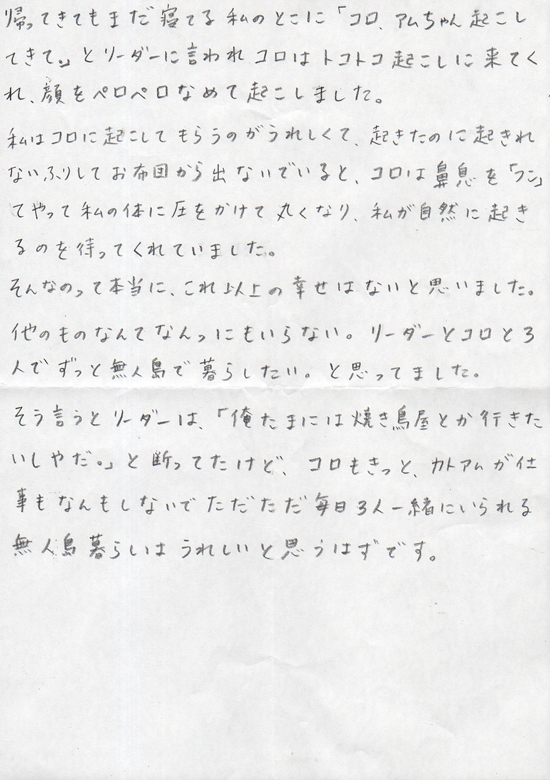 帰ってきてもまだ寝てる私のとこに「コロ、アムちゃん起こし
てきて。」とリーダーに言われコロはトコトコ起こしに来てく
れ、顔をペロペロなめて起こしました。
私はコロに起こしてもらうのがうれしくて、起きたのに起きれ
ないふりしてお布団から出ないでいると、コロは鼻息を「フン」
てやって私の体に圧をかけて丸くなり、私が自然に起き
るのを待ってくれていました。
そんなのって本当に、これ以上の幸せはないと思いました。
他のものなんてなんっにもいらない。リーダーとコロと3
人でずっと無人島で暮らしたい。と思ってました。
そう言うとリーダーは、「俺たまには焼き鳥屋とか行きた
いしやだ。」と断ってたけど、コロもきっと、カトアムが仕
事もなんもしないでただただ毎日3人一緒にいられる
無人島暮らしいはうれしいと思うはずです。